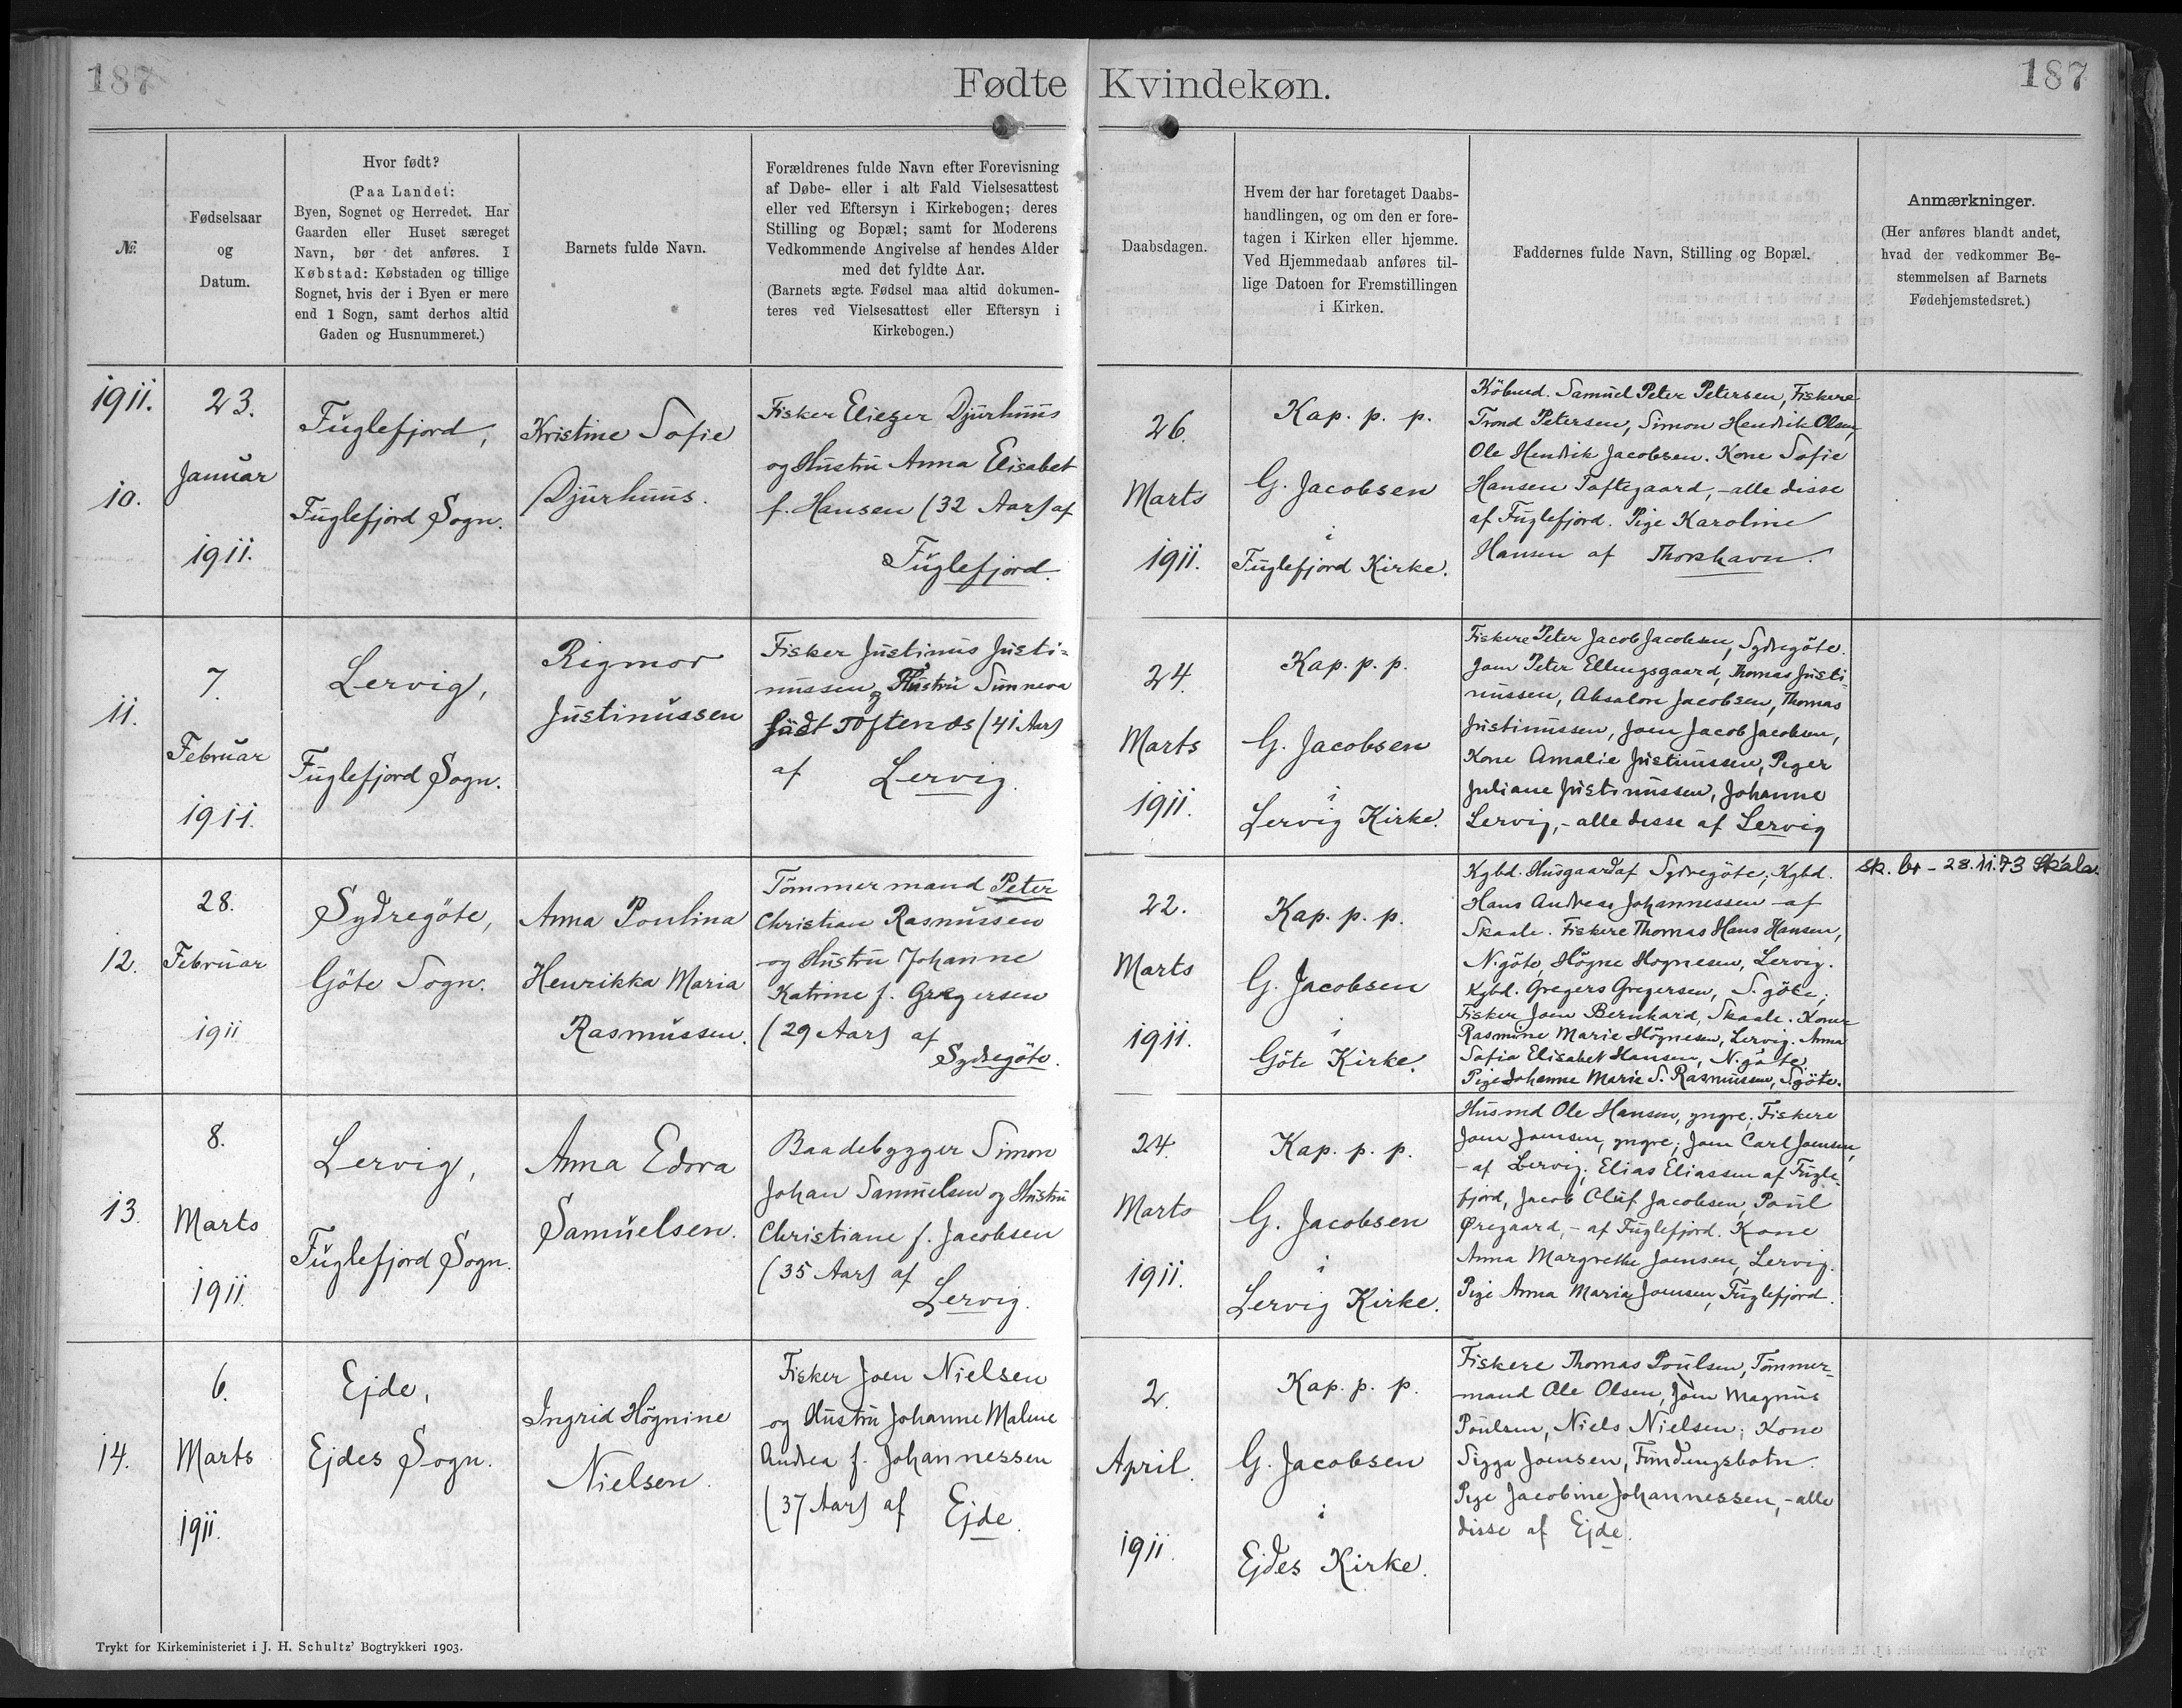 187
Fødte Kvindekøn.
187
№
Fødselsaar
og
Datum.
Hvor født?
(Paa Landet:
Byen, Sognet og Herredet. Har
Gaarden eller Huset særeget
Navn, bør det anføres. I
Købstad: Købstaden og tillige
Sognet, hvis der i Byen er mere
end 1 Sogn, samt derhos altid
Gaden og Husnummeret.)
Barnets fulde Navn.
Forældrenes fulde Navn efter Forevisning
af Døbe- eller i alt Fald Vielsesattest
eller ved Eftersyn i Kirkebogen; deres
Stilling og Bopæl; samt for Moderens
Vedkommende Angivelse af hendes Alder
med det fyldte Aar.
(Barnets ægte Fødsel maa altid dokumen-
teres ved Vielsesattest eller Eftersyn i
Kirkebogen.)
Daabsdagen.
Hvem der har foretaget Daabs-
handlingen, og om den er fore-
tagen i Kirken eller hjemme.
Ved Hjemmedaab anføres til-
lige Datoen for Fremstillingen
i Kirken.
Faddernes fulde Navn, Stilling og Bopæl.
Anmærkninger.
(Her anføres blandt andet,
hvad der vedkommer Be-
stemmelsen af Barnets
Fødehjemstedsret.)
1911.
10.
23.
Januar
1911.
Fuglefjord,
Fuglefjord Sogn.
Kristine Sofie
Djurhuus.
Fisker Eliezer Djurhuus
og Hustru Anna Elisabet
f. Hansen (32 Aar) af
Fuglefjord.
26.
Marts
1911.
Kap. p. p.
G. Jacobsen
i
Fuglefjord Kirke.
Köbmd. Samuel Peter Petersen, Fiskere
Trond Petersen, Simon Hendrik Olsen,
Ole Hendrik Jacobsen. Kone Sofie
Hansen Toftegaard, - alle disse
af Fuglefjord. Pige Karoline
Hansen af Thorshavn.
11.
7.
Februar
1911.
Lervig,
Fuglefjord Sogn.
Rigmor
Justinussen
Fisker Justinus Justi-
nussen og Hustru Sunneva
født Toftenes (41 Aar)
af Lervig.
24.
Marts
1911.
Kap. p. p.
G. Jacobsen
i
Lervig Kirke.
Fiskere Peter Jacob Jacobsen, Sydregöte.
Joen Peter Ellingsgaard, Thomas Justi-
nussen, Absalon Jacobsen, Thomas
Justinussen, Joen Jacob Jacobsen,
Kone Amalie Justinussen, Piger
Juliane Justinussen, Johanne
Lervig, - alle disse af Lervig
12.
28.
Februar
1911
Sydregöte,
Göte Sogn.
Anna Poulina
Henrikka Maria
Rasmussen.
Tömmermand Peter
Christian Rasmussen
og Hustru Johanne
Katrine f. Gregersen
(29 Aar) af
Sydregöte.
22.
Marts
1911.
Kap. p. p.
G. Jacobsen
i
Göte Kirke.
Kgbd. Husgaard af Sydregöte; Kgbd.
Hans Andreas Johannessen - af
Skaale. Fiskere Thomas Hans Hansen,
N.göte, Högne Hognesen, Lervig.
Kgbd. Gregers Gregersen, S. göte;
Fisker Joen Bernhard, Skaale. Koner
Rasmine Marie Högnesen, Lervig. Anna
Sofia Elisabet Hansen, N.göte;
Pige Johanne Marie S. Rasmussen, S.göte.
sk. br - 28.11.73 Skála.
13.
8.
Marts
1911.
Lervig,
Fuglefjord Sogn.
Anna Edora
Samuelsen.
Baadebygger Simon
Johan Samuelsen og Hustru
Christiane f. Jacobsen
(35 Aar) af
Lervig.
24.
Marts
1911.
Kap. p. p.
G. Jacobsen
i
Lervig Kirke.
Husmd Ole Hansen, yngre; Fiskere
Joen Joensen, yngre; Joen Carl Joensen,
- af Lervig; Elias Eliassen af Fugle-
fjord, Jacob Oluf Jacobsen, Poul
Øregaard, - af Fuglefjord. Kone
Anna Margrethe Joensen, Lervig.
Pige Anna Maria Joensen, Fuglefjord.
14.
6.
Marts
1911.
Ejde,
Ejdes Sogn.
Ingrid Högnine
Nielsen.
Fisker Joen Nielsen
og Hustru Johanne Malene
Andrea f. Johannessen
(37 Aar) af Ejde.
2.
April.
1911.
Kap. p. p.
G. Jacobsen
i
Ejdes Kirke.
Fiskere Thomas Poulsen, Tömmer-
mand Ole Olsen, Joen Magnus
Poulsen, Niels Nielsen; Kone
Sigga Joensen, Fundingsbotn.
Pige Jacobine Johannessen, - alle
disse af Ejde.
Trykt for Kirkeministeriet i J. H. Schultz' Bogtrykkeri 1903.